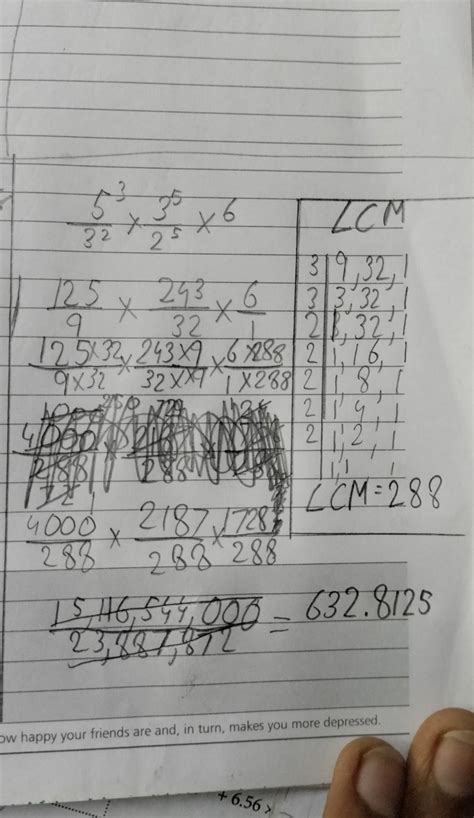 5³/3² × 3⁵/2⁵ × 6
125/9 × 243/32 × 6/1
125×32/9×32 × 243×9/32×9 × 6×288/1×288
4000/288 × 2187/288 × 1728/288
15,116,544,000/23,887,872 = 632.8125
LCM
3 | 9, 32, 1
3 | 3, 32, 1
2 | 1, 32, 1
2 | 1, 16, 1
2 | 1, 8, 1
2 | 1, 4, 1
2 | 1, 2, 1
1, 1, 1
LCM = 288
ow happy your friends are and, in turn, makes you more depressed.
+ 6.56 >